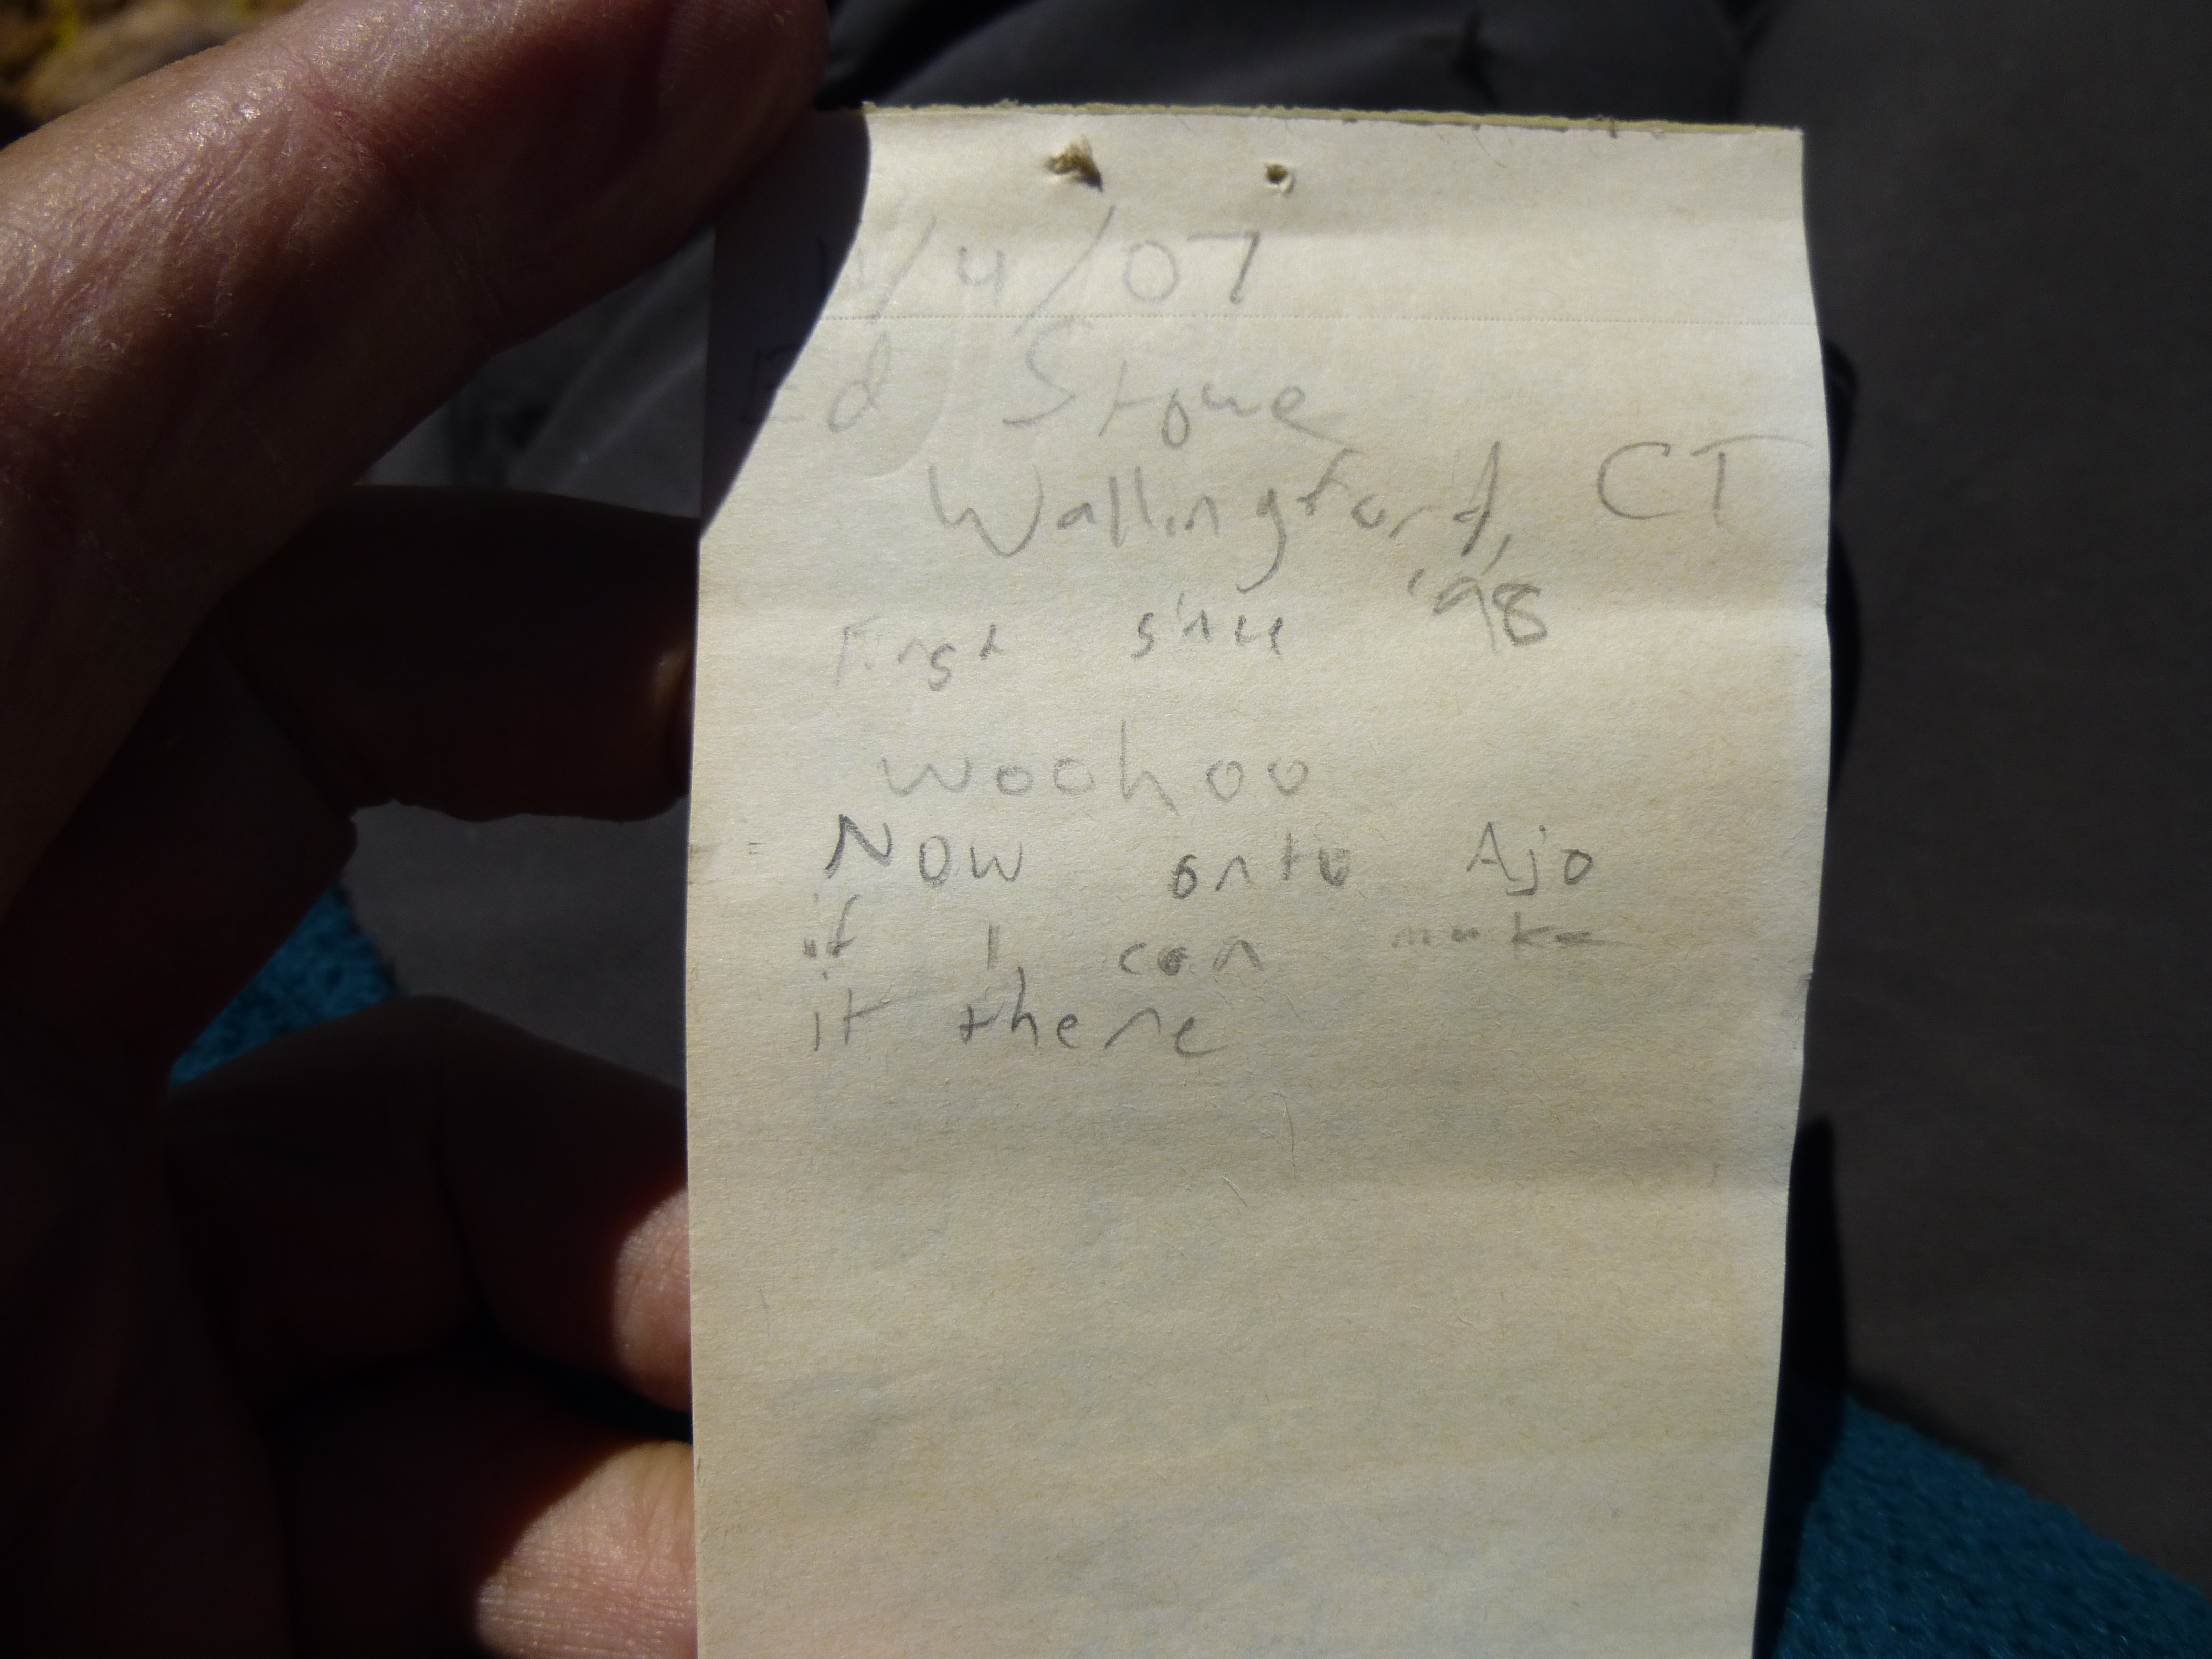 11/4/07
Ed Stowe
Wallingford, CT
First since '98
woohoo
Now onto Ajo
if I can make
it there